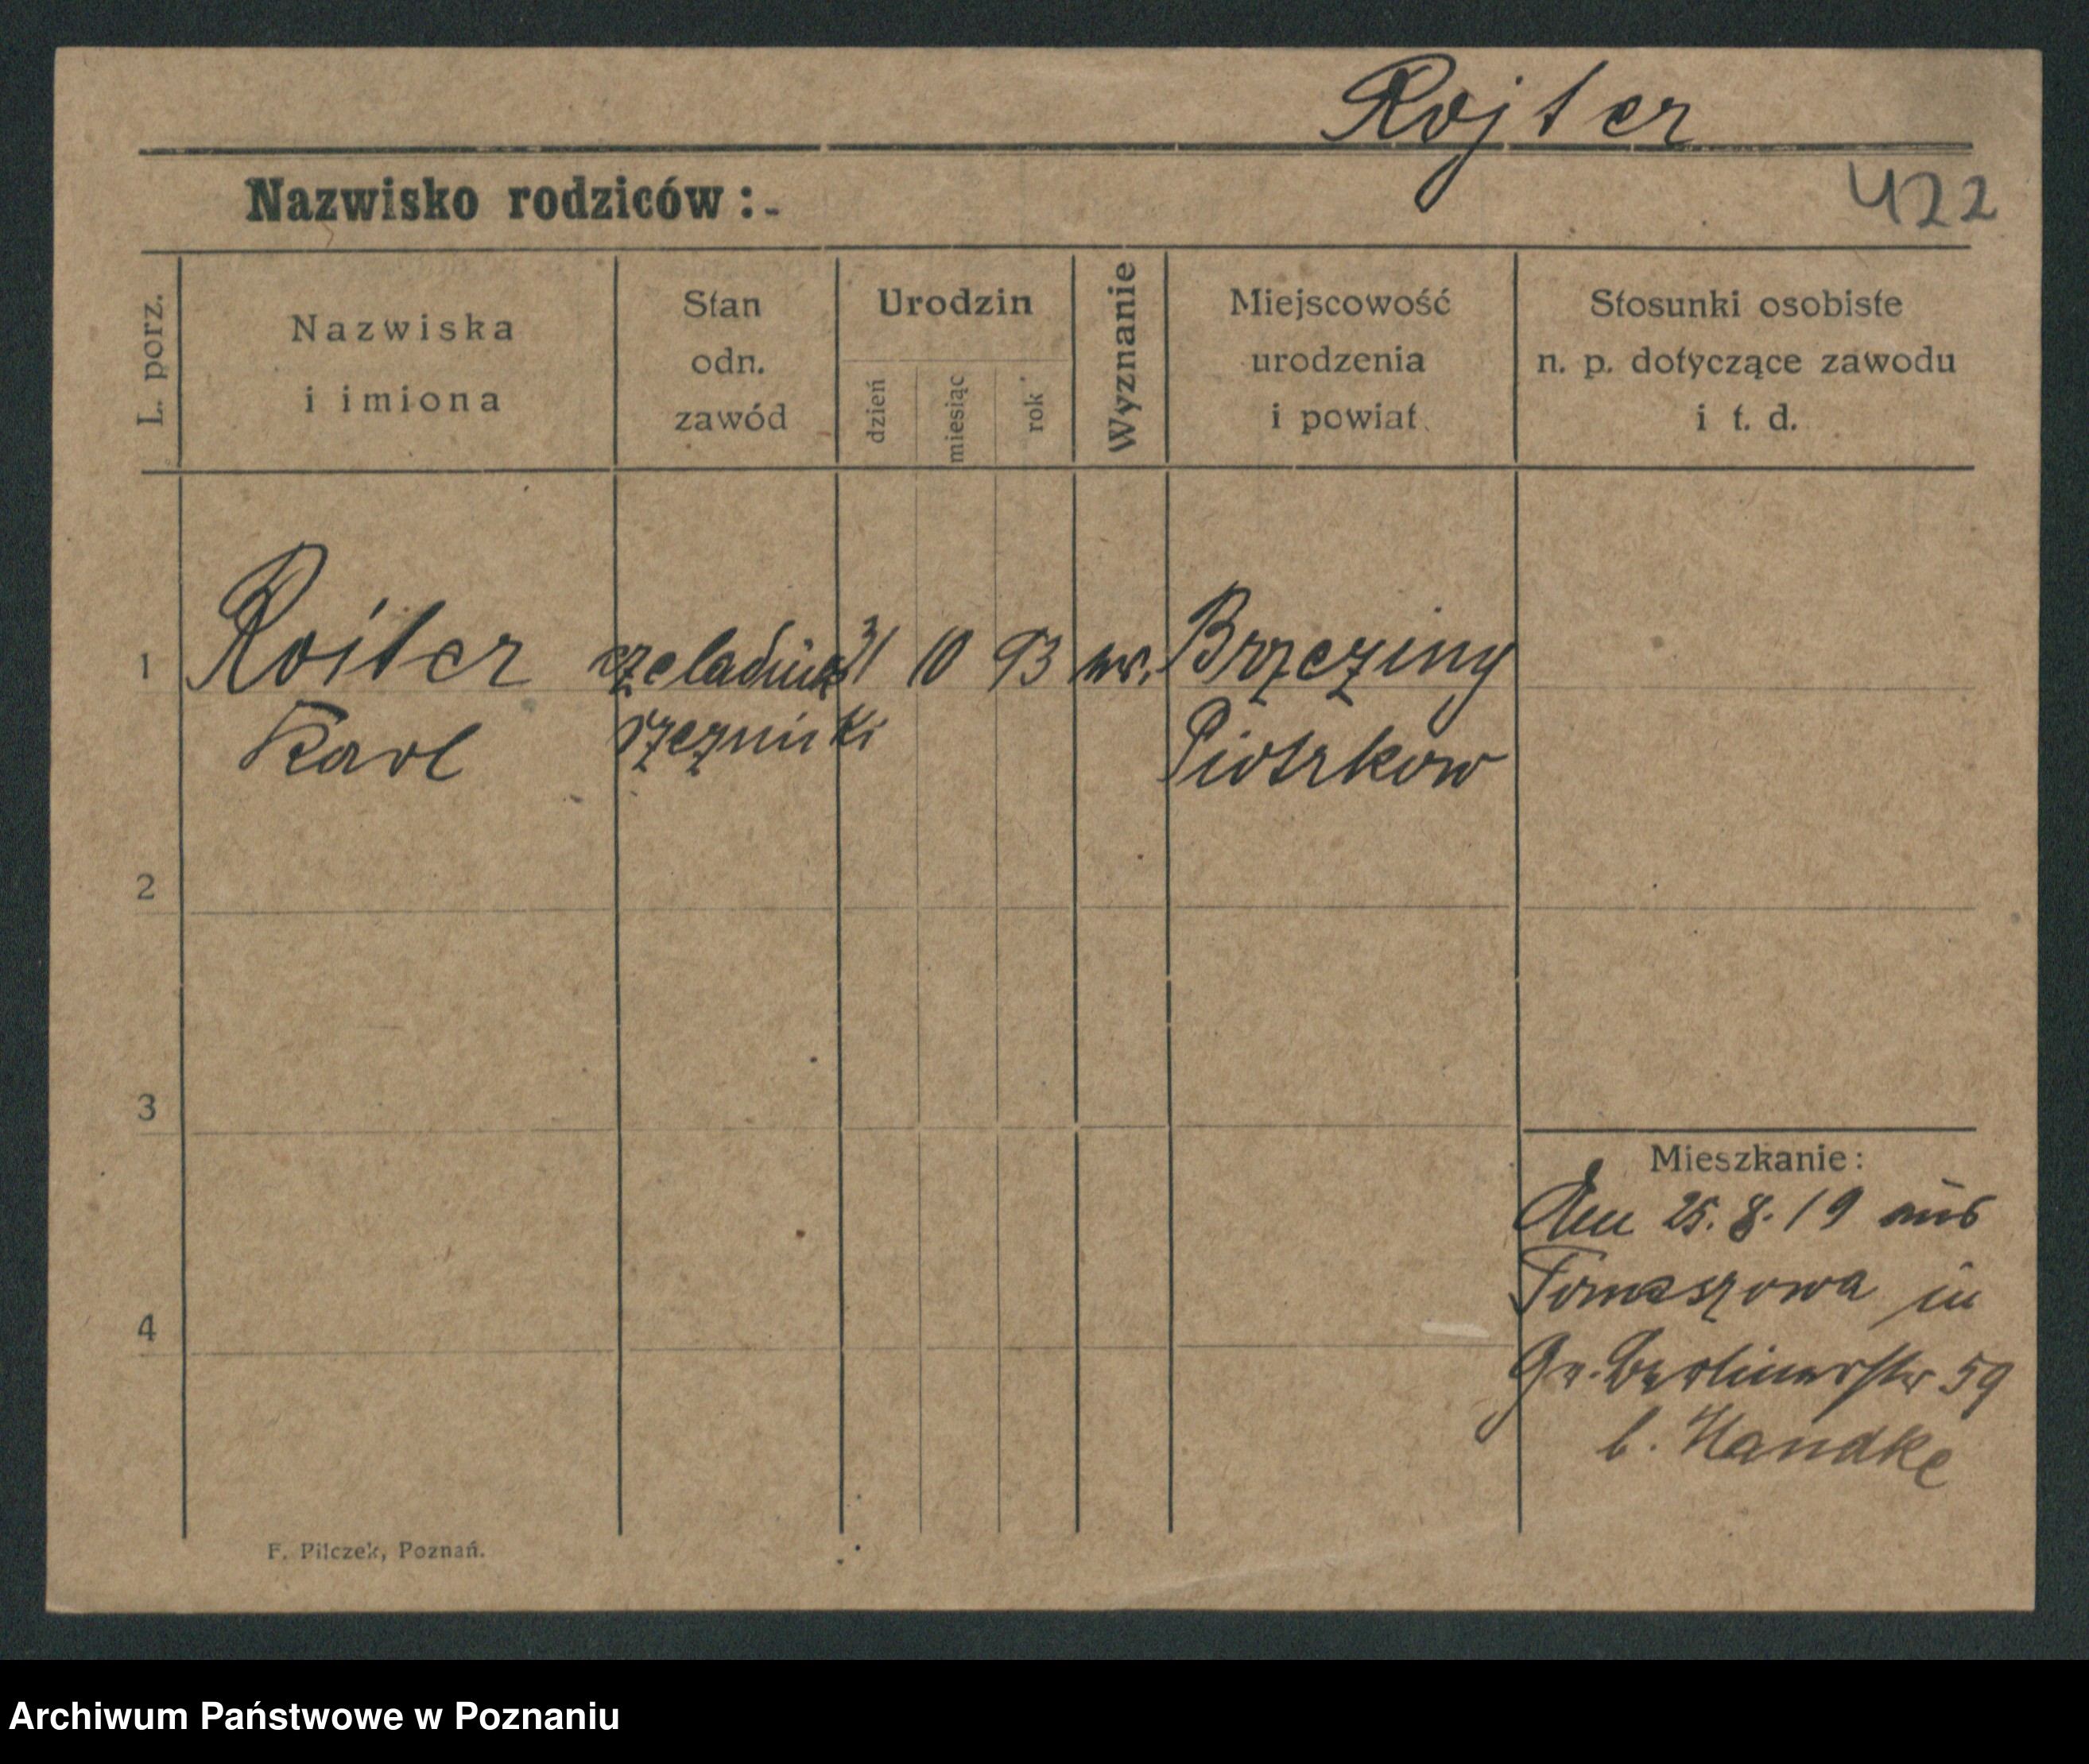 Rojter
Nazwisko rodziców :-
422
L. porz.
Nazwiska
i imiona
Stan
odn.
zawód
Urodzin
dzień
miesiąc
rok
Wyznanie
Miejscowość
urodzenia
i powiat
Stosunki osobiste
n. p. dotyczące zawodu
i t. d.
1 Roiter czeladnik 31 10 93 Brzeziny
Karol rzeznicki Piotrkow
2
3
4
Mieszkanie:
Den 25. 8. 19 aus
Tomaszowa in
Gr. Berlinerstr 59
b. Handke
F. Pilczek, Poznań.
Archiwum Państwowe w Poznaniu